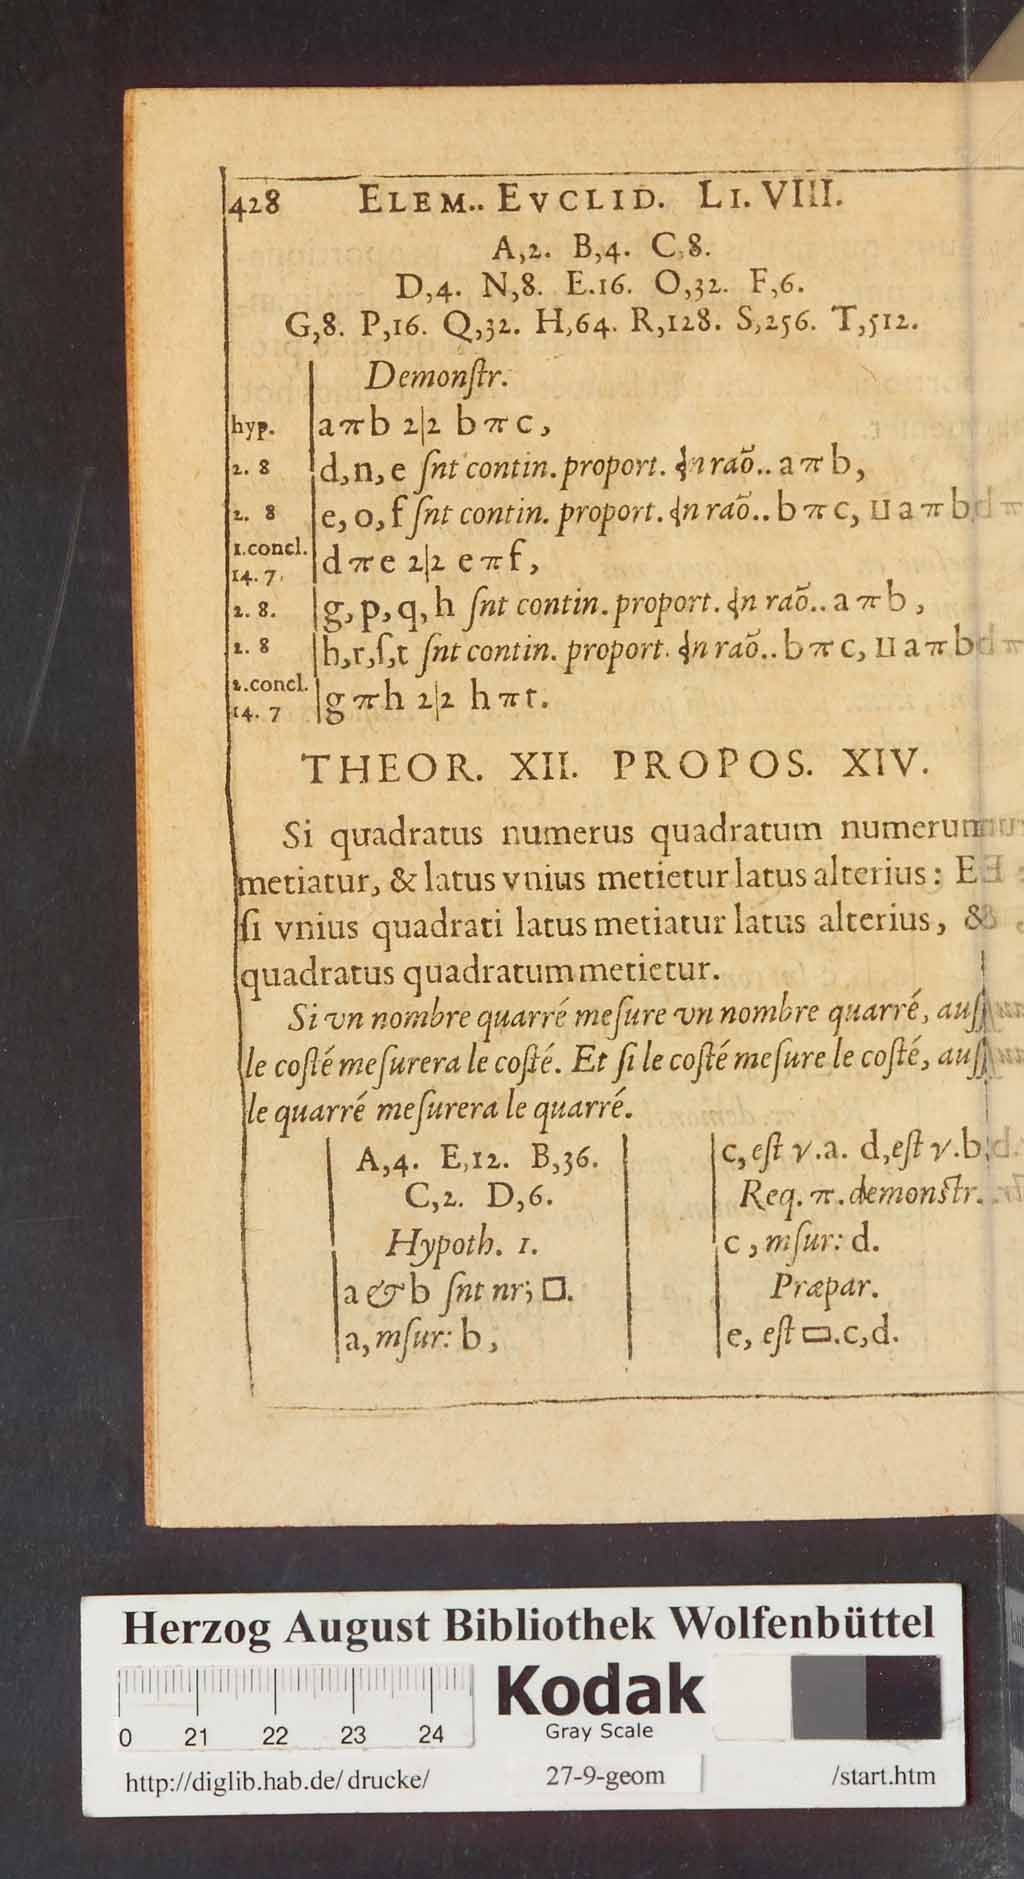 428 ELEM.. EVCLID. LI. VIII.
A,2. B,4. C,8.
D,4. N,8. E.16. O,32. F,6.
G,8. P,16. Q,32. H,64. R,128. S,256. T,512.
Demonſtr.
hyp. aπb 2|2 bπc,
2. 8 d,n,e ſnt contin. proport. raõ.. aπb,
2. 8 e,o,f ſnt contin. proport. raõ.. bπc, ⊔ aπb
1.concl.
14. 7. dπe 2|2 eπf,
2. 8. g,p,q,h ſnt contin. proport. raõ.. aπb,
2. 8 h,r,ſ,t ſnt contin. proport. raõ.. bπc, ⊔ aπb
2.concl.
14. 7 gπh 2|2 hπt.
THEOR. XII. PROPOS. XIV.
Si quadratus numerus quadratum numerum
metiatur, & latus vnius metietur latus alterius: E
ſi vnius quadrati latus metiatur latus alterius, &
quadratus quadratum metietur.
Si vn nombre quarré meſure vn nombre quarré, auſſ
le coſté meſurera le coſté. Et ſi le coſté meſure le coſté, auſſ
le quarré meſurera le quarré.
A,4. E,12. B,36.
C,2. D,6.
Hypoth. 1.
a & b ſnt nr; □.
a, mſur: b,
c, eſt γ.a. d, eſt γ.b;
Req. π. demonſtr.
c, mſur: d.
Præpar.
e, eſt ▭.c,d.
Herzog August Bibliothek Wolfenbüttel
0 21 22 23 24
Kodak
Gray Scale
http://diglib.hab.de/drucke/ 27-9-geom /start.htm